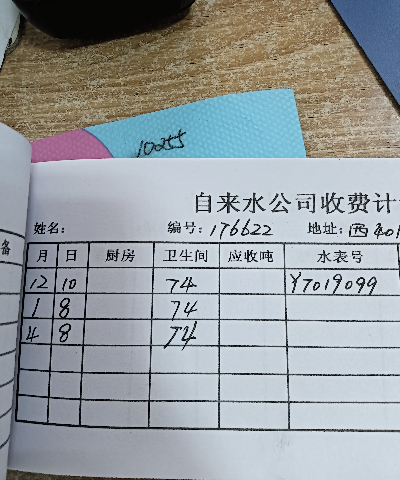 10255
自来水公司收费计
姓名: 编号: 176622 地址: 西401
备
月 日 厨房 卫生间 应收吨 水表号
12 10 74 Y7019099
1 8 74
4 8 74